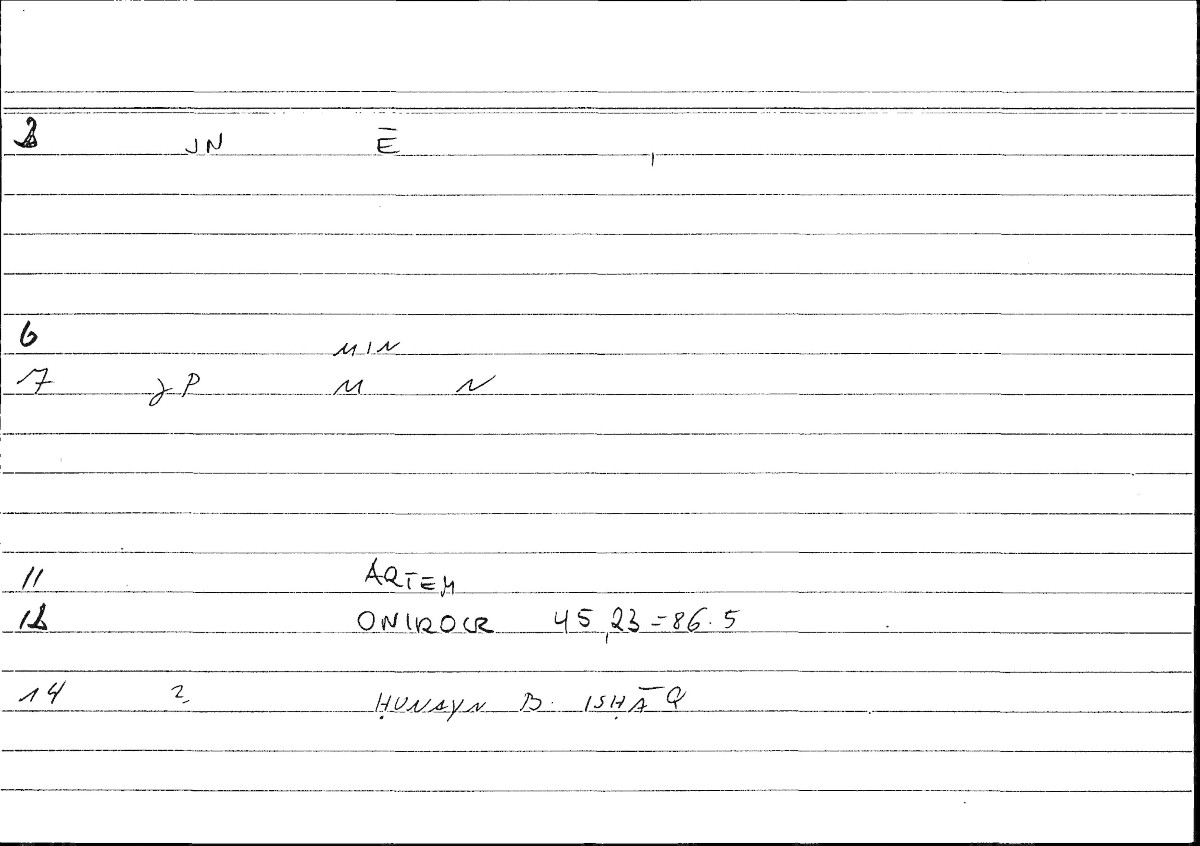 2 JN Ē
6 MIN
7 JP M N
11 ARTEM
12 ONIROCR 45,23=86.5
14 2 ḤUNAYN B. ISḤĀQ